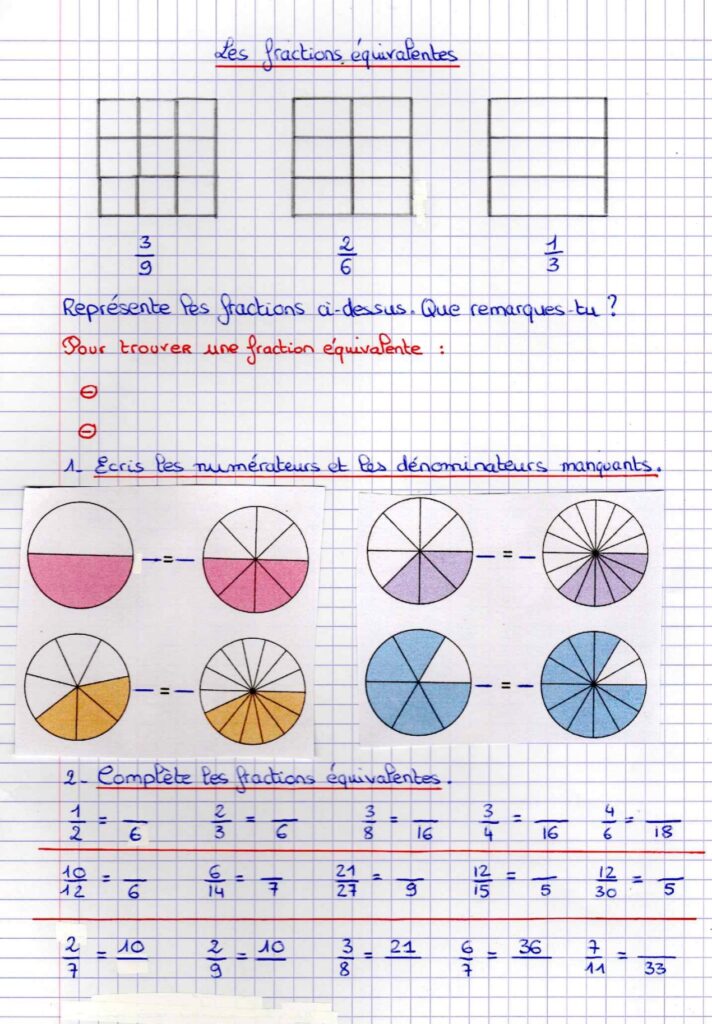 Les fractions équivalentes
3/9 2/6 1/3
Représente les fractions ci-dessus. Que remarques-tu ?
Pour trouver une fraction équivalente :
⊖
⊖
1- Ecris les numérateurs et les dénominateurs manquants.
— = — — = —
— = — — = —
2- Complète les fractions équivalentes.
1/2 = __/6 2/3 = __/6 3/8 = __/16 3/4 = __/16 4/6 = __/18
10/12 = __/6 6/14 = __/7 21/27 = __/9 12/15 = __/5 12/30 = __/5
2/7 = 10/__ 2/9 = 10/__ 3/8 = 21/__ 6/7 = 36/__ 7/11 = __/33